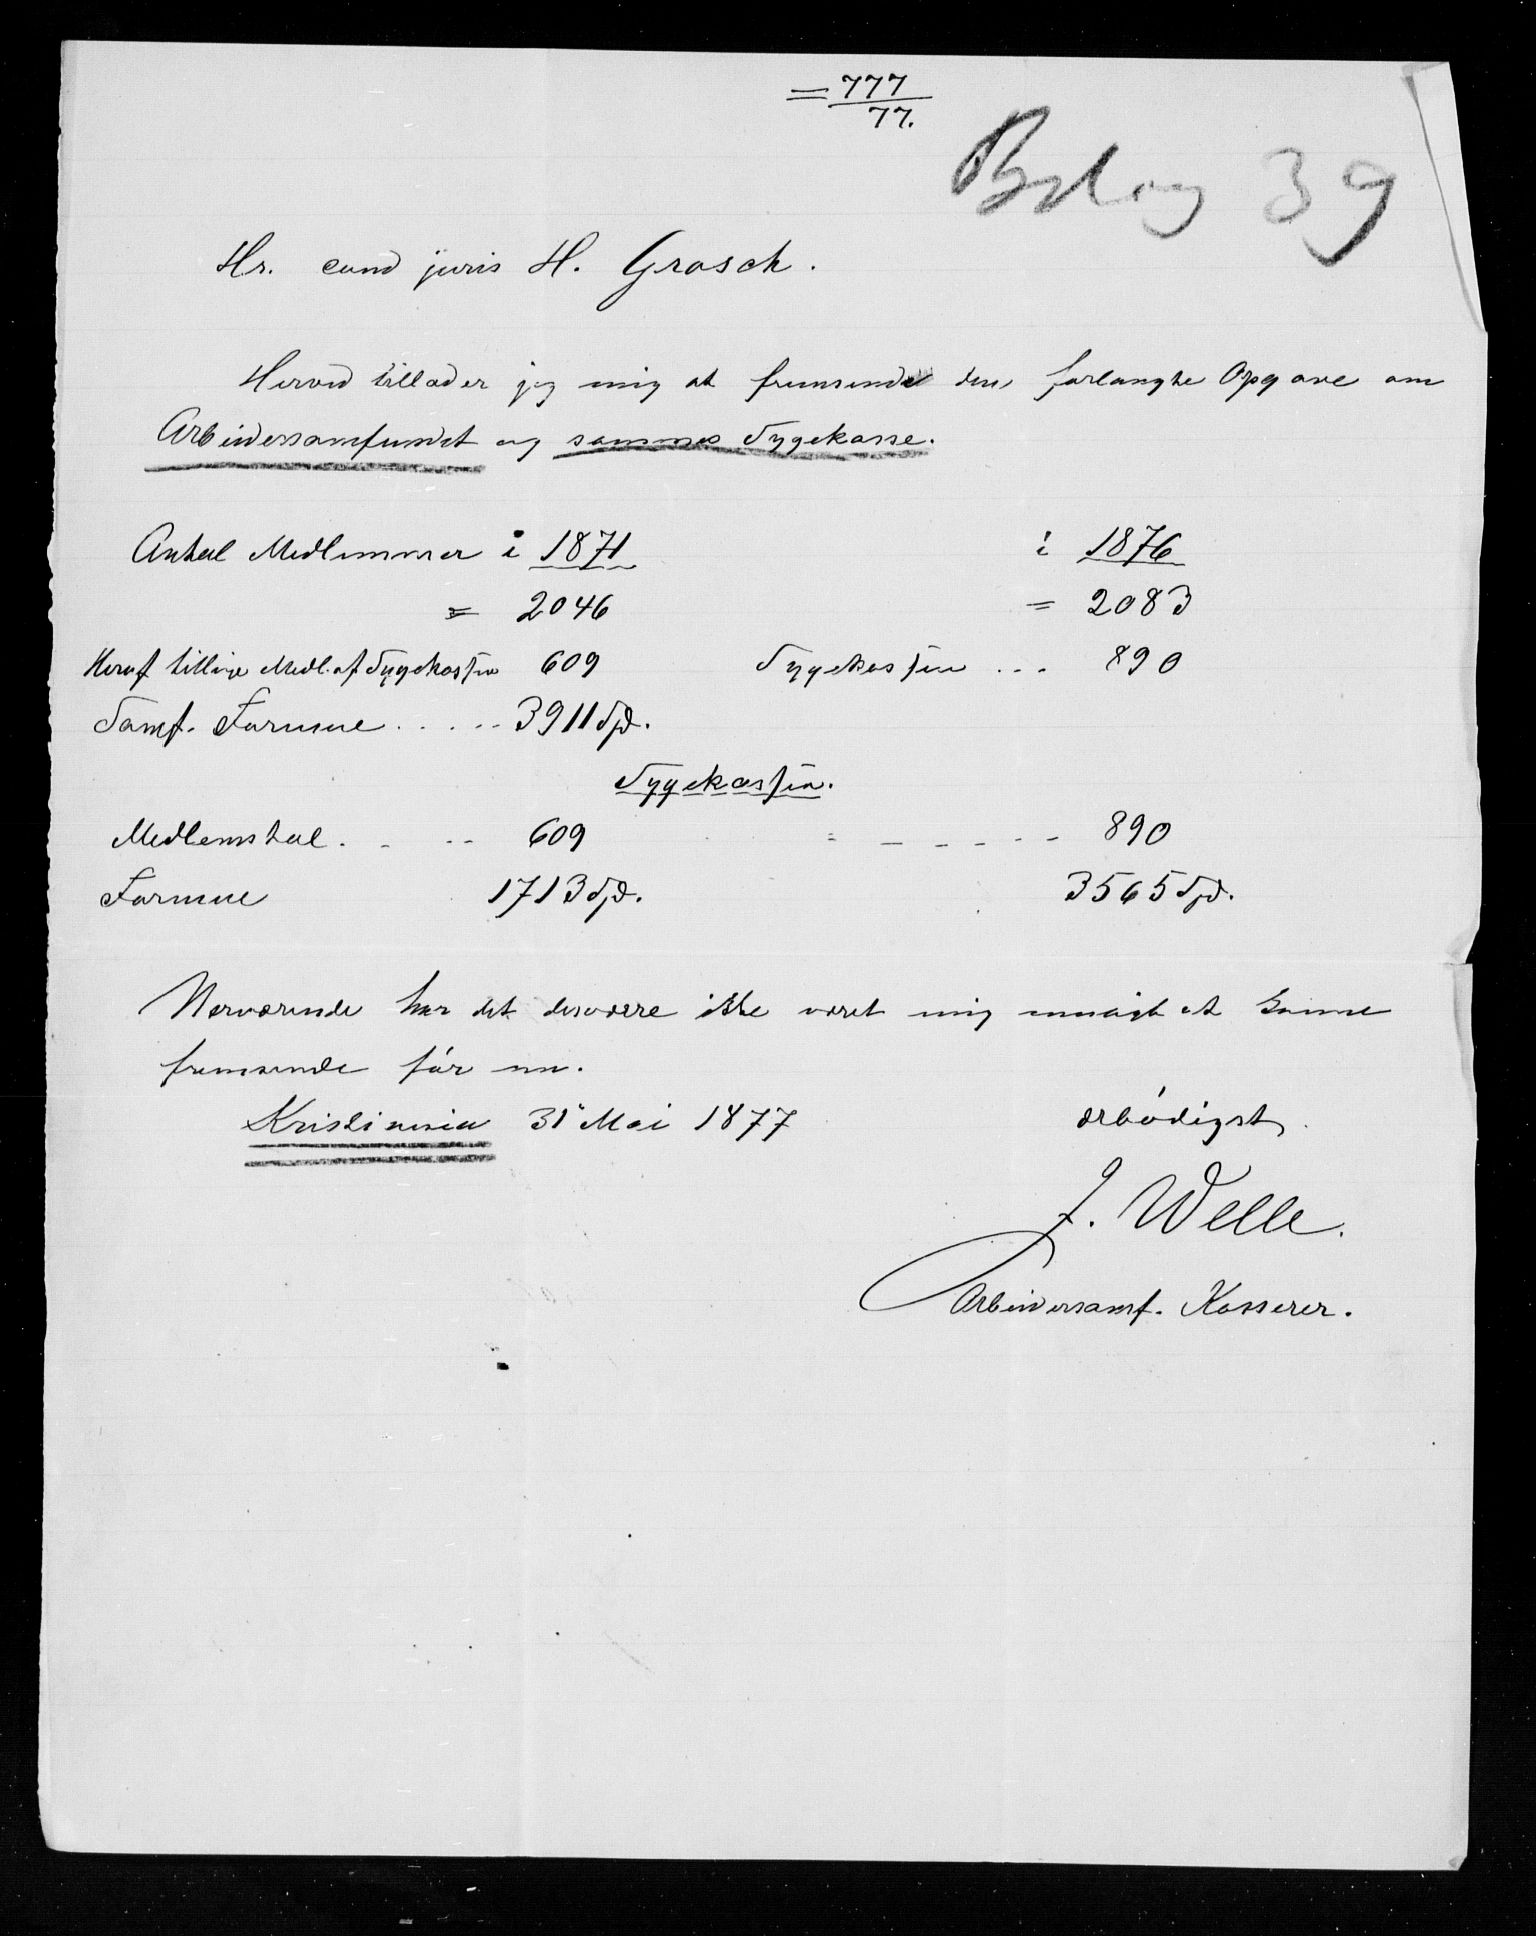 = 777
77.
Bilag 39
Hr. cand juris H. Grosch.
Herved tillader jeg mig at fremsende den forlangte Opgave om
Arbeidersamfundet og sammes Sygekasse.
Antal Medlemmer i 1871 i 1876
= 2046 = 2083
Heraf tillige Medl. af Sygekassen 609 Sygekassen ... 890
Samf. Formue ..... 3911 Spd.
Sygekassen.
Medlemstal. - -- 609 = - - - - - - 890
Formue 1713 Spd. 3565 Spd.
Nærværende har det desværre ikke været mig muligt at kunne
fremsende før nu.
Kristiania 31 Mai 1877 ærbødigst
J. Welle.
Arbeidersamf. Kasserer.